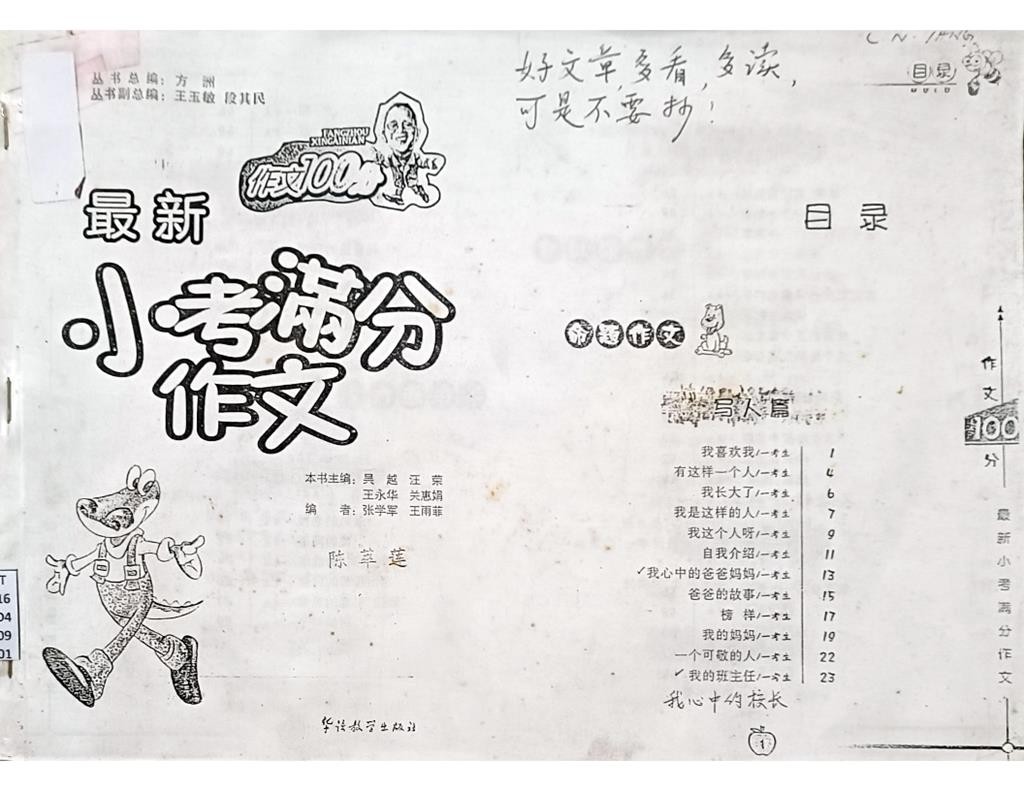 丛书总编：方 洲
丛书副总编：王玉敏 段其民
TANGZHOU
XINGAINIAN
作文100分
最新
小考满分
作文
本书主编：吴 越 汪 荣
王永华 关惠娟
编 者：张学军 王雨菲
陈苹莲
华语教学出版社
T
16
04
09
01
好文章，多看，多读，
可是不要抄！
目录
MULU
目 录
命题作文
写人篇
我喜欢我/一考生 1
有这样一个人/一考生 4
我长大了/一考生 6
我是这样的人/一考生 7
我这个人呀/一考生 9
自我介绍/一考生 11
✓我心中的爸爸妈妈/一考生 13
爸爸的故事/一考生 15
榜 样/一考生 17
我的妈妈/一考生 19
一个可敬的人/一考生 22
✓我的班主任/一考生 23
我心中的校长
1
作文
100
分
最新小考满分作文